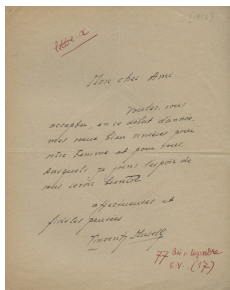 lettre a
Mon cher Ami
Voulez-vous
accepter, en ce début d'année,
mes vœux bien sincères pour
votre femme et pour vous,
auxquels je joins l'espoir de
vous revoir bientôt
affectueuses et
fidèles pensées
Vincent
77
E.V. (17)